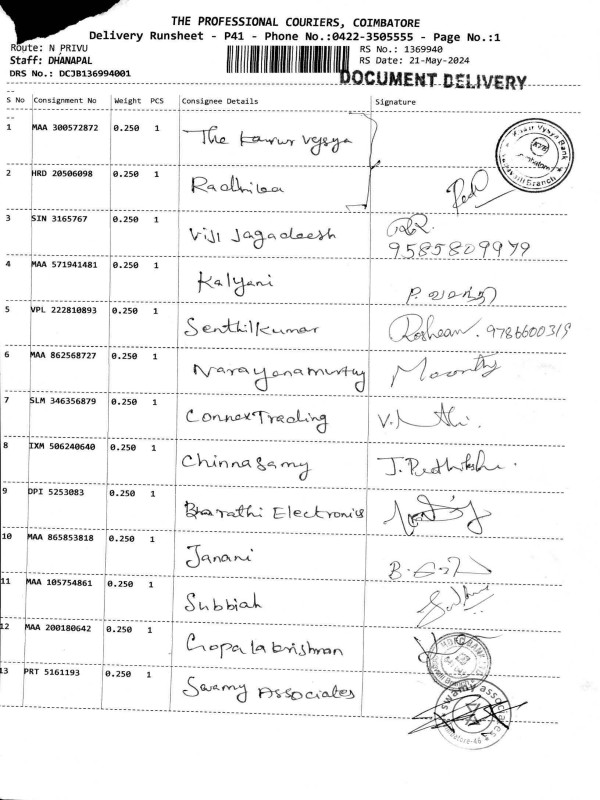 THE PROFESSIONAL COURIERS, COIMBATORE
Delivery Runsheet - P41 - Phone No.:0422-3505555 - Page No.:1
Route: N PRIVU RS No.: 1369940
Staff: DHANAPAL RS Date: 21-May-2024
DRS No.: DCJB136994001 DOCUMENT DELIVERY
S No Consignment No Weight PCS Consignee Details Signature
1 MAA 300572872 0.250 1 The Karur Vysya
Vysya Bank
KVB
Branch
2 HRD 20506098 0.250 1 Radhika
3 SIN 3165767 0.250 1 Viji Jagadeesh
9585809979
4 MAA 571941481 0.250 1 Kalyani
5 VPL 222810893 0.250 1 Senthilkumar Roshean. 9786600319
6 MAA 862568727 0.250 1 Narayanamurthy Moorthy
7 SLM 346356879 0.250 1 Connex Trading
8 IXM 506240640 0.250 1 Chinnasamy
9 DPI 5253083 0.250 1 Bharathi Electronics
10 MAA 865853818 0.250 1 Janani
11 MAA 105754861 0.250 1 Subbiah
12 MAA 200180642 0.250 1 Gopalakrishnan
13 PRT 5161193 0.250 1 Swamy Associates
swamy associates